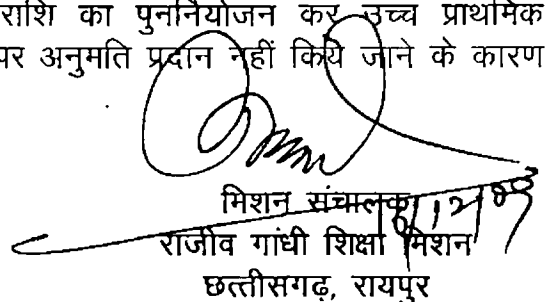 राशि का पुनर्नियोजन कर उच्च प्राथमिक
पर अनुमति प्रदान नहीं किये जाने के कारण
मिशन संचालक
राजीव गांधी शिक्षा मिशन
छत्तीसगढ़, रायपुर